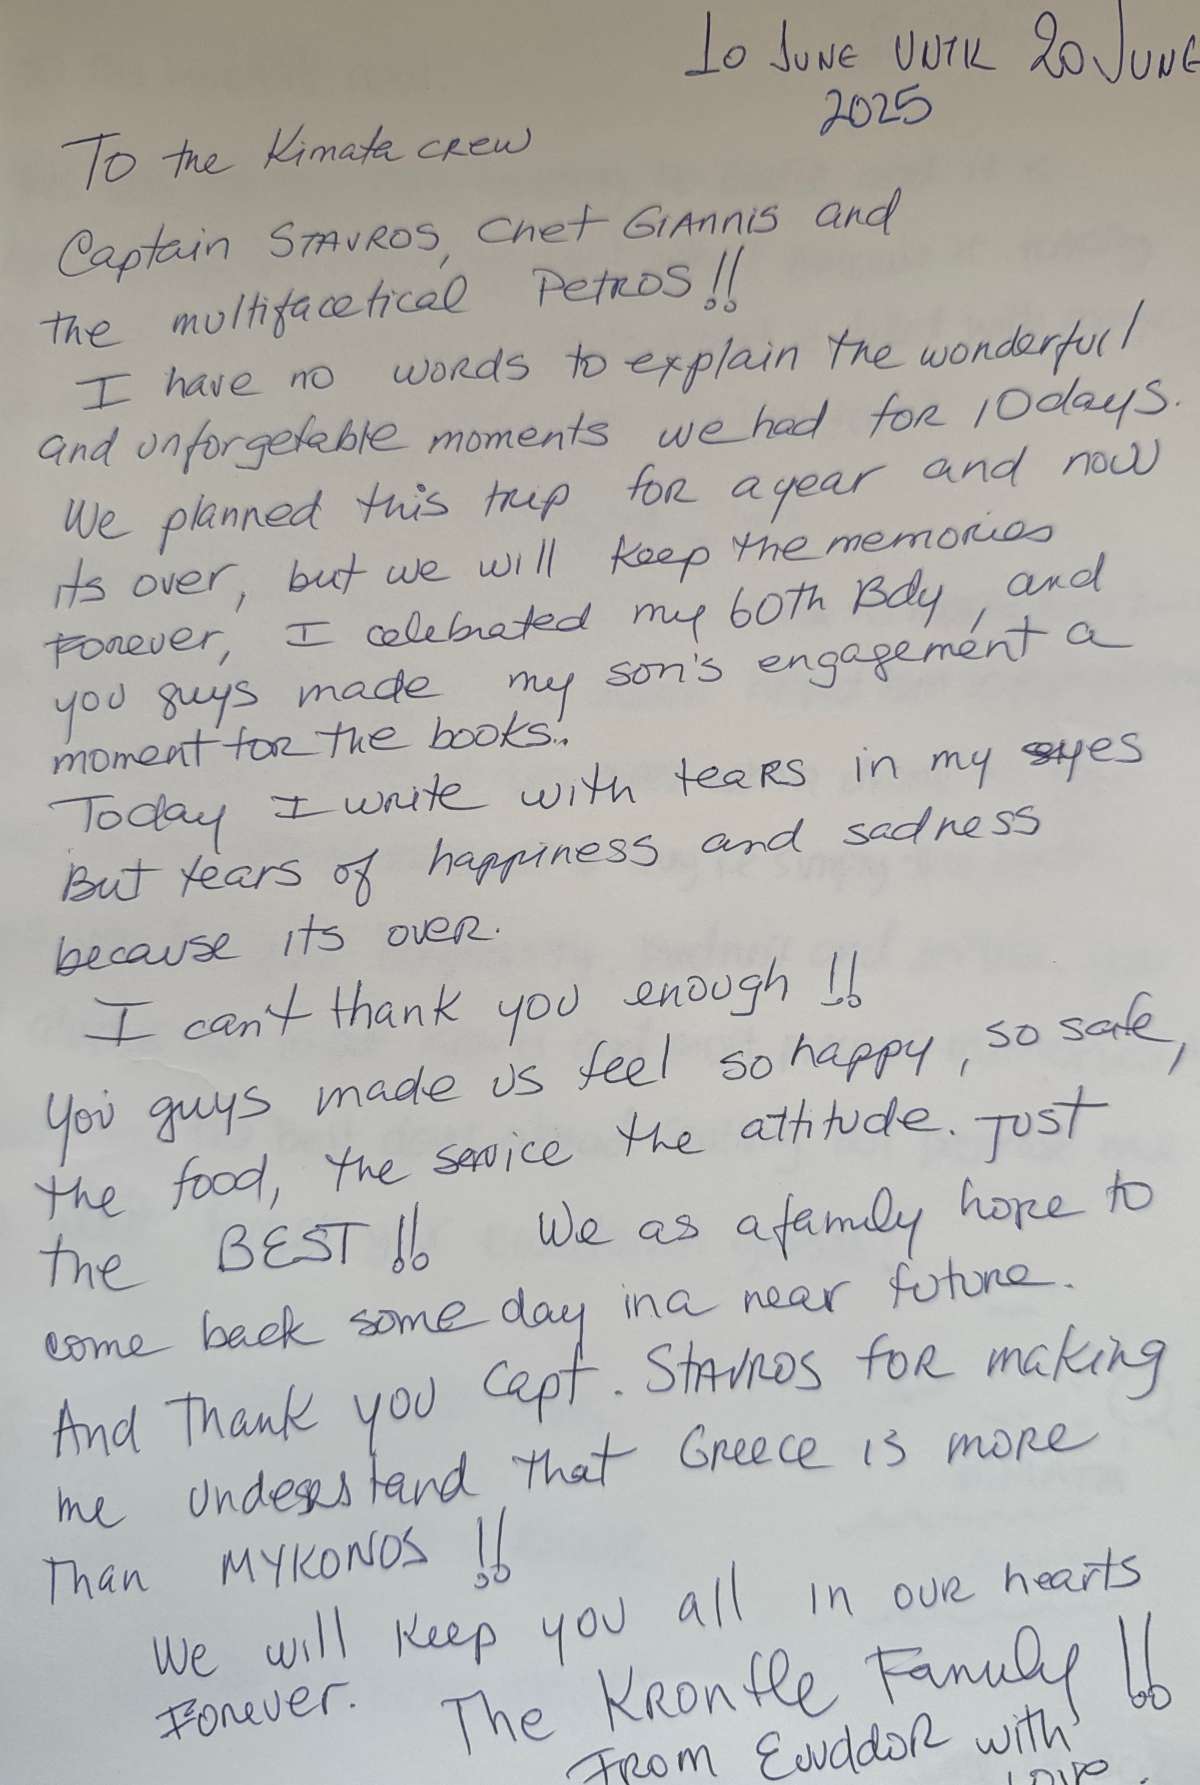 10 JUNE UNTIL 20 JUNE
2025
To the Kimata crew
Captain STAVROS, Chef GIANNIS and
the multifacetical PETROS!!
I have no words to explain the wonderful
and unforgetable moments we had for 10 days.
We planned this trip for a year and now
its over, but we will keep the memories
Forever, I celebrated my 60th Bdy, and
you guys made my son's engagement a
moment for the books..
Today I write with tears in my eyes
But tears of happiness and sadness
because its over.
I can't thank you enough!!
You guys made us feel so happy, so safe,
the food, the service the attitude. Just
the BEST!! We as a family hope to
come back some day in a near future.
And Thank you Capt. STAVROS for making
me understand that Greece is more
Than MYKONOS!!
We will keep you all in our hearts
Forever. The Family!!
From with
love.